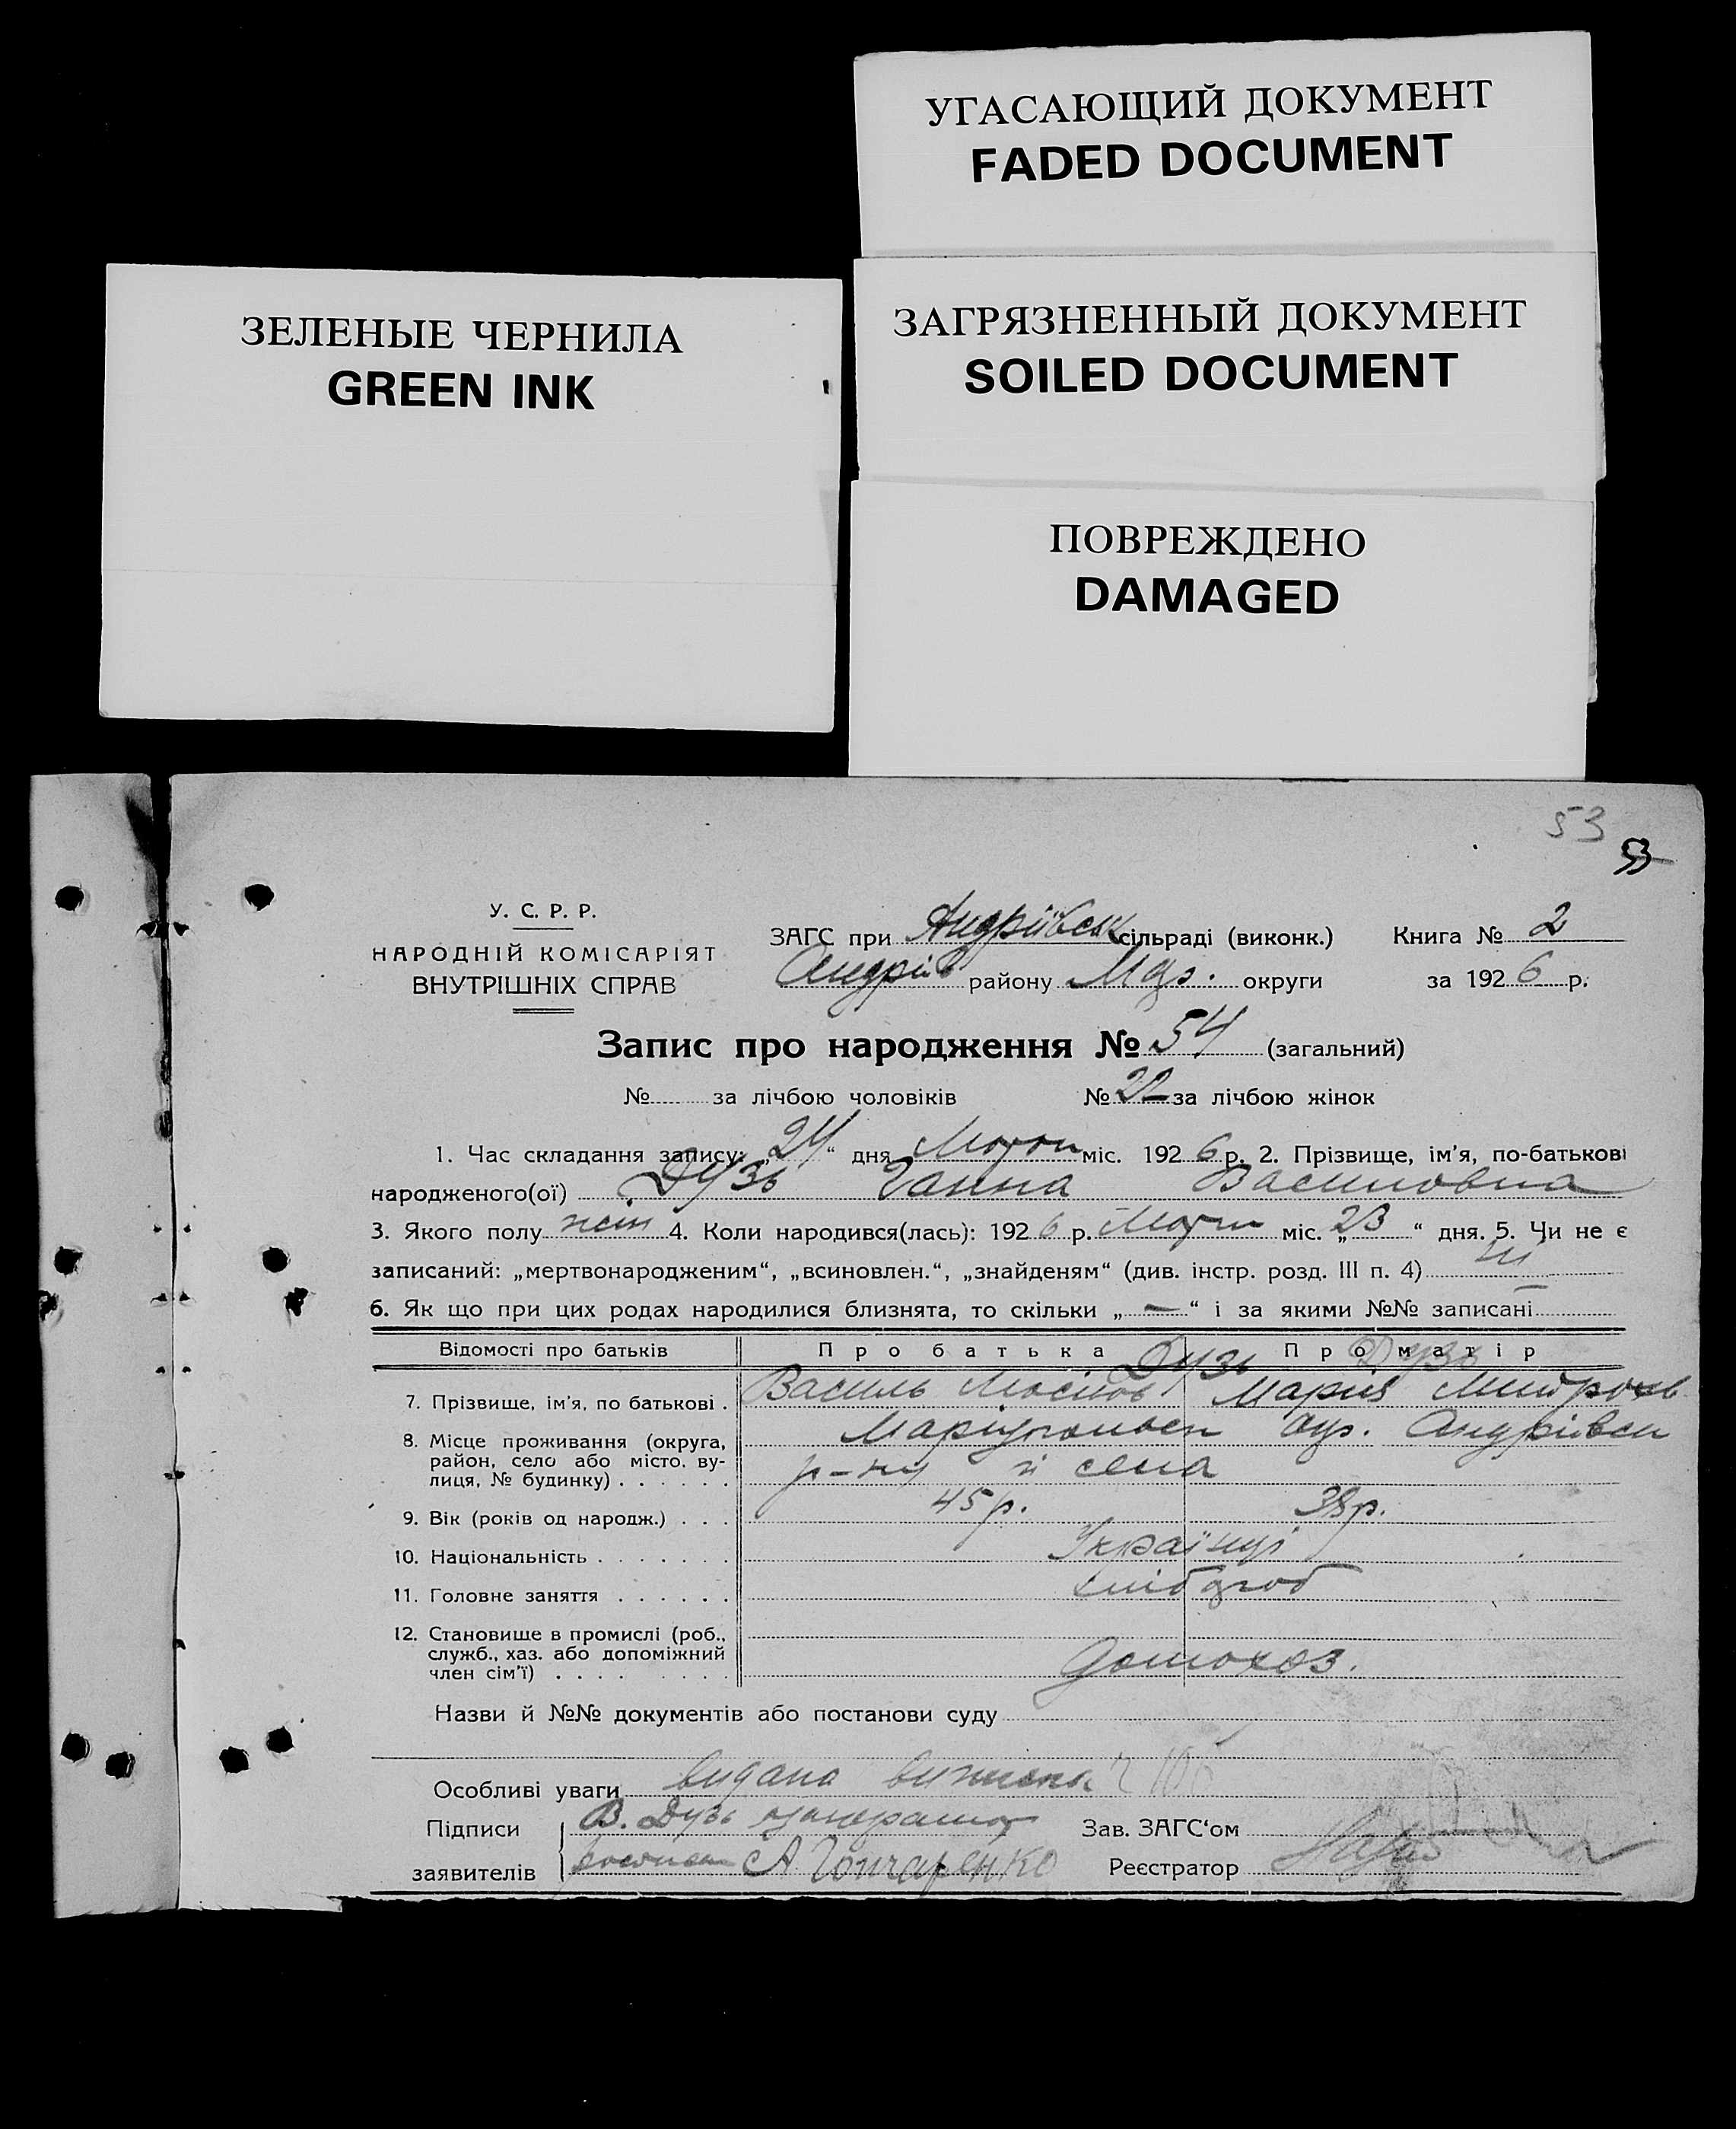 УГАСАЮЩИЙ ДОКУМЕНТ
FADED DOCUMENT
ЗЕЛЕНЫЕ ЧЕРНИЛА
GREEN INK
ЗАГРЯЗНЕННЫЙ ДОКУМЕНТ
SOILED DOCUMENT
ПОВРЕЖДЕНО
DAMAGED
53
53
У. С. Р. Р.
НАРОДНІЙ КОМІСАРІЯТ
ВНУТРІШНІХ СПРАВ
ЗАГС при Андріївськ сільраді (виконк.) Книга № 2
Андріїв району Мар. округи за 1926 р.
Запис про народження № 54 (загальний)
№ за лічбою чоловіків № 22 за лічбою жінок
1. Час складання запису: „24“ дня Март міс. 1926 р. 2. Прізвище, ім'я, по-батькові
народженого(ої) Дузь Ганна Василовна
3. Якого полу жін 4. Коли народився(лась): 1926 р. Март міс. „23“ дня. 5. Чи не є
записаний: „мертвонародженим“, „всиновлен.“, „знайденям“ (див. інстр. розд. III п. 4) ні
6. Як що при цих родах народилися близнята, то скільки „—“ і за якими №№ записані —
Відомості про батьків Про батька Про матір
Дузь Дузь
7. Прізвище, ім'я, по батькові . Василь Мария
8. Місце проживання (округа, район, село або місто, вулиця, № будинку) . . . . . . Маріупольск окр. Андріївск
р-ну і села
9. Вік (років од народж.) . . . 45 р. 38 р.
10. Національність . . . . . . . Українці
11. Головне заняття . . . . . . хлібороб
12. Становище в промислі (роб., служб., хаз. або допоміжний член сім'ї) . . . . . . . . домохоз.
Назви й №№ документів або постанови суду
Особливі уваги видана
Підписи В. Дузь Зав. ЗАГС'ом
заявителів А Гончаренко Реєстратор